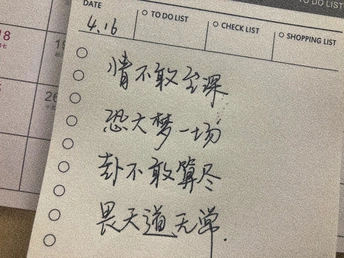 TO DO LIST
DATE
TO DO LIST
CHECK LIST
SHOPPING LIST
4.16
情不敢至深
恐大梦一场
卦不敢算尽
畏天道无常.
18
19
26